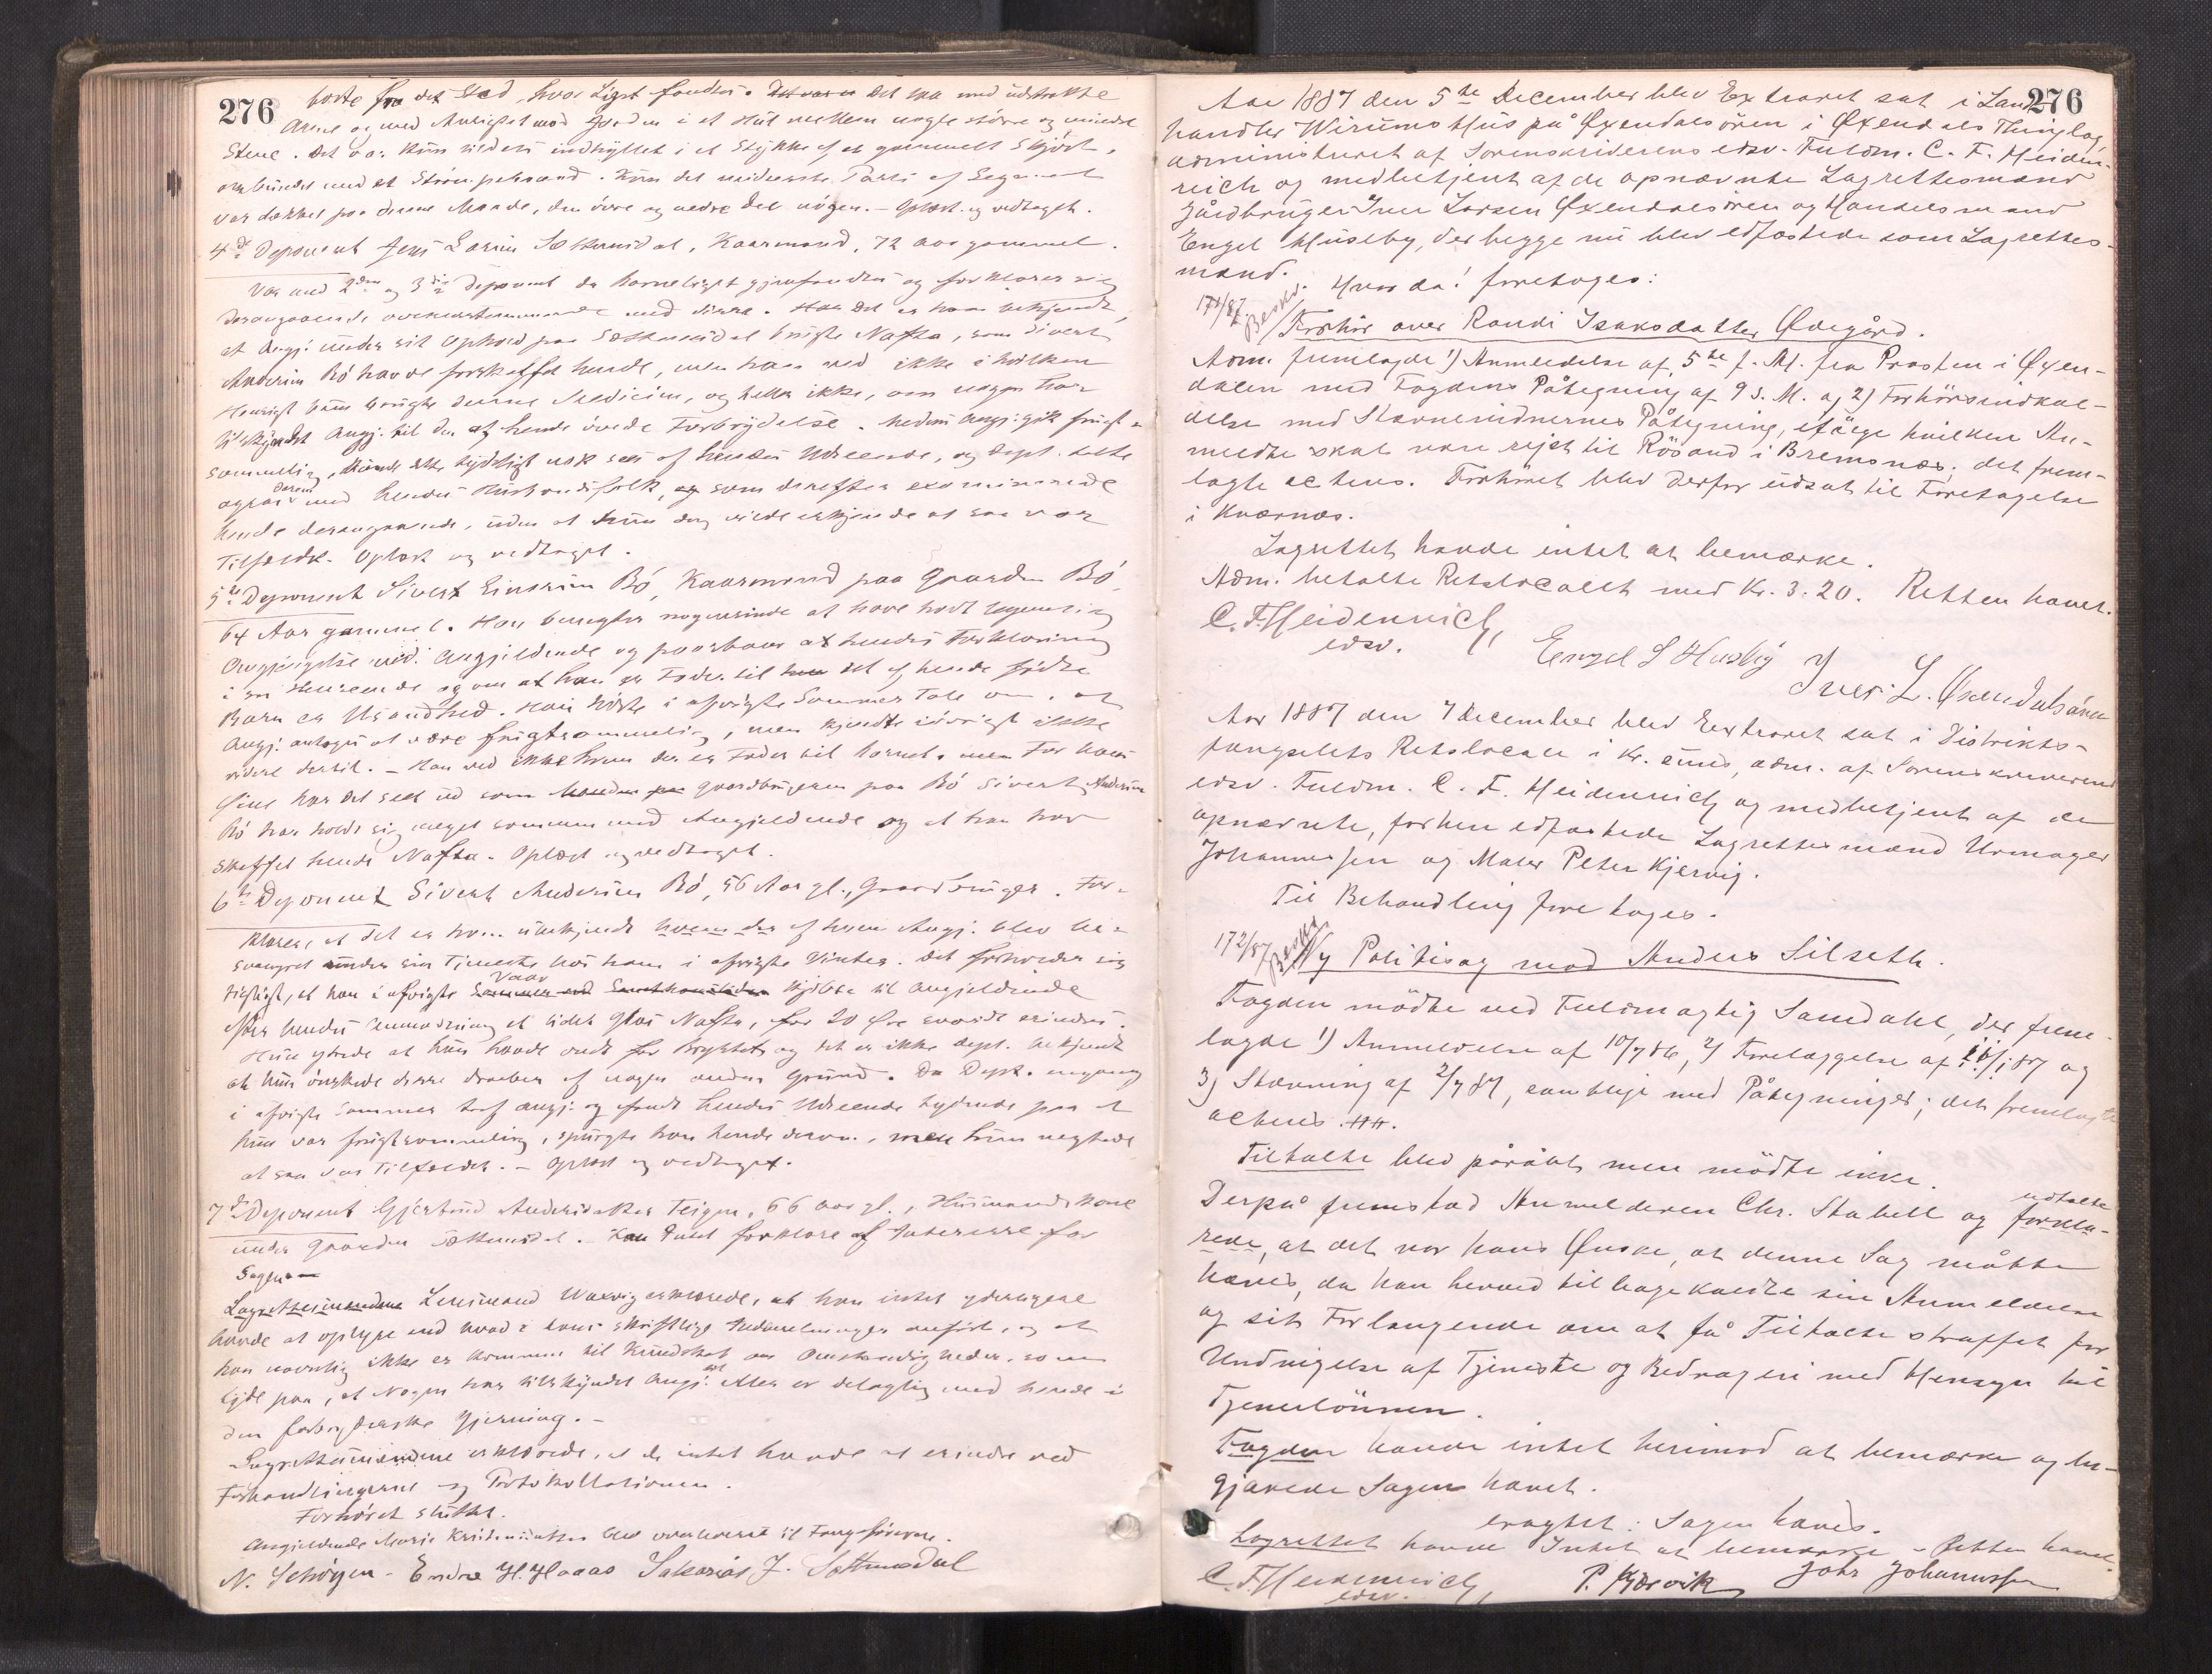 276
borte fra det Sted, hvor Liget fandtes. Det laa med udstrakte
Arme og med Ansigtet mod Jorden i et Hul mellem nogle större og mindre
Stene. Det var kun tildels indhyllet i et Stykke af et gammelt Skjört,
ombundet med et Strömpebaand. Kun det midterste Parti af Legemet
var dækket paa denne Maade, den övre og nedre Del nögen. - Oplæst og vedtaget.
4de Deponent Jens Larsen Sættemsdal, Kaarmand, 72 Aar gammel.
Var med 2den og 3die Deponent da Barneliget gjenfandtes og forklarer sig
desangaaende overensstemmende med disse. Har det er ham bekjendt,
at Angj. under sit Ophold paa Sættemsdal brugte Nafta, som Sivert
Andersen Bö havde forskaffet hende, men han ved ikke i hvilken
Hensigt hun brugte denne Medicin, og heller ikke, om nogen har
tilskyndet Angj. til den af hende övede Forbrydelse. Medens Angj. gik frugt-
sommelig, kunde dette tydeligt nok sees af hendes Udseende, og Dept. talte
ogsaa derom med hendes Husbondsfolk, som derefter examinerede
hende desangaaende, uden at hun dog vilde erkjende at saa var
Tilfældet. Oplæst og vedtaget.
5te Deponent Sivert Einersen Bö, Kaarmand paa Gaarden Bö
64 Aar gammel. Han benegter nogensinde at have havt legemlig
Omgjængelse med Angjældende og paastaar at hendes Forklaring
i saa Henseende og om at han er Fader til det af hende födte
Barn er Usandhed. Han hörte i afvigte Sommer Tale om, at
Angj. antoges at være frugtsommelig, men kjendte iövrigt ikke
videre dertil. - Han ved ikke hvem der er Fader til Barnet, men For hans
Öine har det seet ud som Gaardbrugeren paa Bö Sivert Andersen
Bö har holdt sig meget sammen med Angjældende og at han har
skaffet hende Nafta. Oplæst og vedtaget.
6te Deponent Sivert Andersen Bö, 56 Aar gl., Gaardbruger. For-
klarer, at det er ham ubekjendt hvem der af hvem Angj. blev be-
svangret under sin Tjeneste hos ham i afvigte Vinter. Det forholder sig
rigtigt, at han i afvigte Vaar kjöbte til Angjældende
efter hendes Anmodning et lidet Glas Nafta, for 20 Öre
Hun ytrede at hun havde ondt for Brystet og det er ikke Dept. bekjendt
at hun önskede disse Draaber af nogen anden Grund. Da Dept. engang
i afvigte Sommer traf Angj. og fandt hendes Udseende tydende paa at
hun var frugtsommelig, spurgte han hende derom, men hun negtede
at saa var Tilfældet. - Oplæst og vedtaget.
7de Deponent Gjertrud Andersdatter Teigen, 66 Aar gl., Husmandskone
under Gaarden Sættemsdal. - Kan Intet forklare af Interesse for
Sagen. -
Lensmand erklærede, at han intet yderligere
havde at oplyse end hvad i hans skriftlige Indberetninger anfört, og at
han navnlig ikke er kommen til Kundskab om Omstændigheder, som
tyde paa, at Nogen har tilskyndet Angj. til eller er delagtig med hende i
den forbryderske Gjerning. -
Lagrettesmændene erklærede, at de intet havde at erindre ved
Forhandlingerne og Protokollationen.
Forhöret sluttet.
Angjældende Marie Kristensdatter blev overleveret til Fangeföreren.
N. Schöyen - Endre H. Haaas Sakarias J. Sættemsdal
276
Aar 1887 den 5te December blev Extraret sat i Land-
handler Wirums Hus på Øxendalsören i Øxendals Thinglag,
administreret af Sorenskriverens edsv. Fuldm. C. F. Heiden-
reich og medbetjent af de opnævnte Lagrettesmænd
Gårdbruger Iver Larsen Øxendalsören og Handelsmand
Engel Huseby, der begge nu blev edfæstede som Lagrettes-
mænd.
Hvor da! foretoges:
171/87 Beskr.
Forhör over Randi Isaksdatter Ödegård.
Adm. fremlagde 1) Anmeldelse af 5te f. M. fra Presten i Øxen-
dalen med Fogdens Påtegning af 9 s. M. og 2) Forhörsindkal-
delse med Stævnevidnernes Påtegning, ifölge hvilken An-
meldte skal være rejst til Rösand i Bremsnæs; det frem-
lagte acteres. Forhöret blev derfor udsat til Foretagelse
i Kværnæs.
Lagrettet havde intet at bemærke.
Adm. betalte Retslocalet med Kr. 3.20. Retten hævet.
C. F. Heidenreich,
edsv.
Engel L Husby Iver. L. Øxendalsören
Aar 1887 den 7 December blev Extraret sat i Distrikts-
fængslets Retslocale i Kr.sund, adm. af Sorenskriverens
edsv. Fuldm. C. F. Heidenreich og medbetjent af de
opnævnte, forhen edfæstede Lagrettesmænd Urmager
Johannessen og Maler Peter Kjervig.
Til Behandling foretoges.
172/87 Beskr.
Ny Politisag mod Anders Silseth.
Fogden mödte ved Fuldmægtig Samdahl, der frem-
lagde 1) Anmeldelse af 10/7 86, 2) Forelæggelse af 10/1 87 og
3) Stævning af 2/7 87, samtlige med Påtegninger; det fremlagte
acteres. ##.
Tiltalte blev påråbt men mödte ikke.
Derpå fremstod Anmelderen Chr. Stabell og udtalte forkla-
rede, at det var hans Ønske, at denne Sag måtte
hæves, da han herved tilbagekaldte sin Anmeldelse
og sit Forlangende om at få Tiltalte straffet for
Undvigelse af Tjeneste og Bedrageri med Hensyn til
Tjenelönnen.
Fogden havde intet herimod at bemærke og be-
gjærede Sagen hævet.
eragtet: Sagen hæves.
Lagrettet havde Intet at bemærke - Retten hævet.
C. F. Heidenreich,
edsv.
P. Kjærvik Johs Johannessen